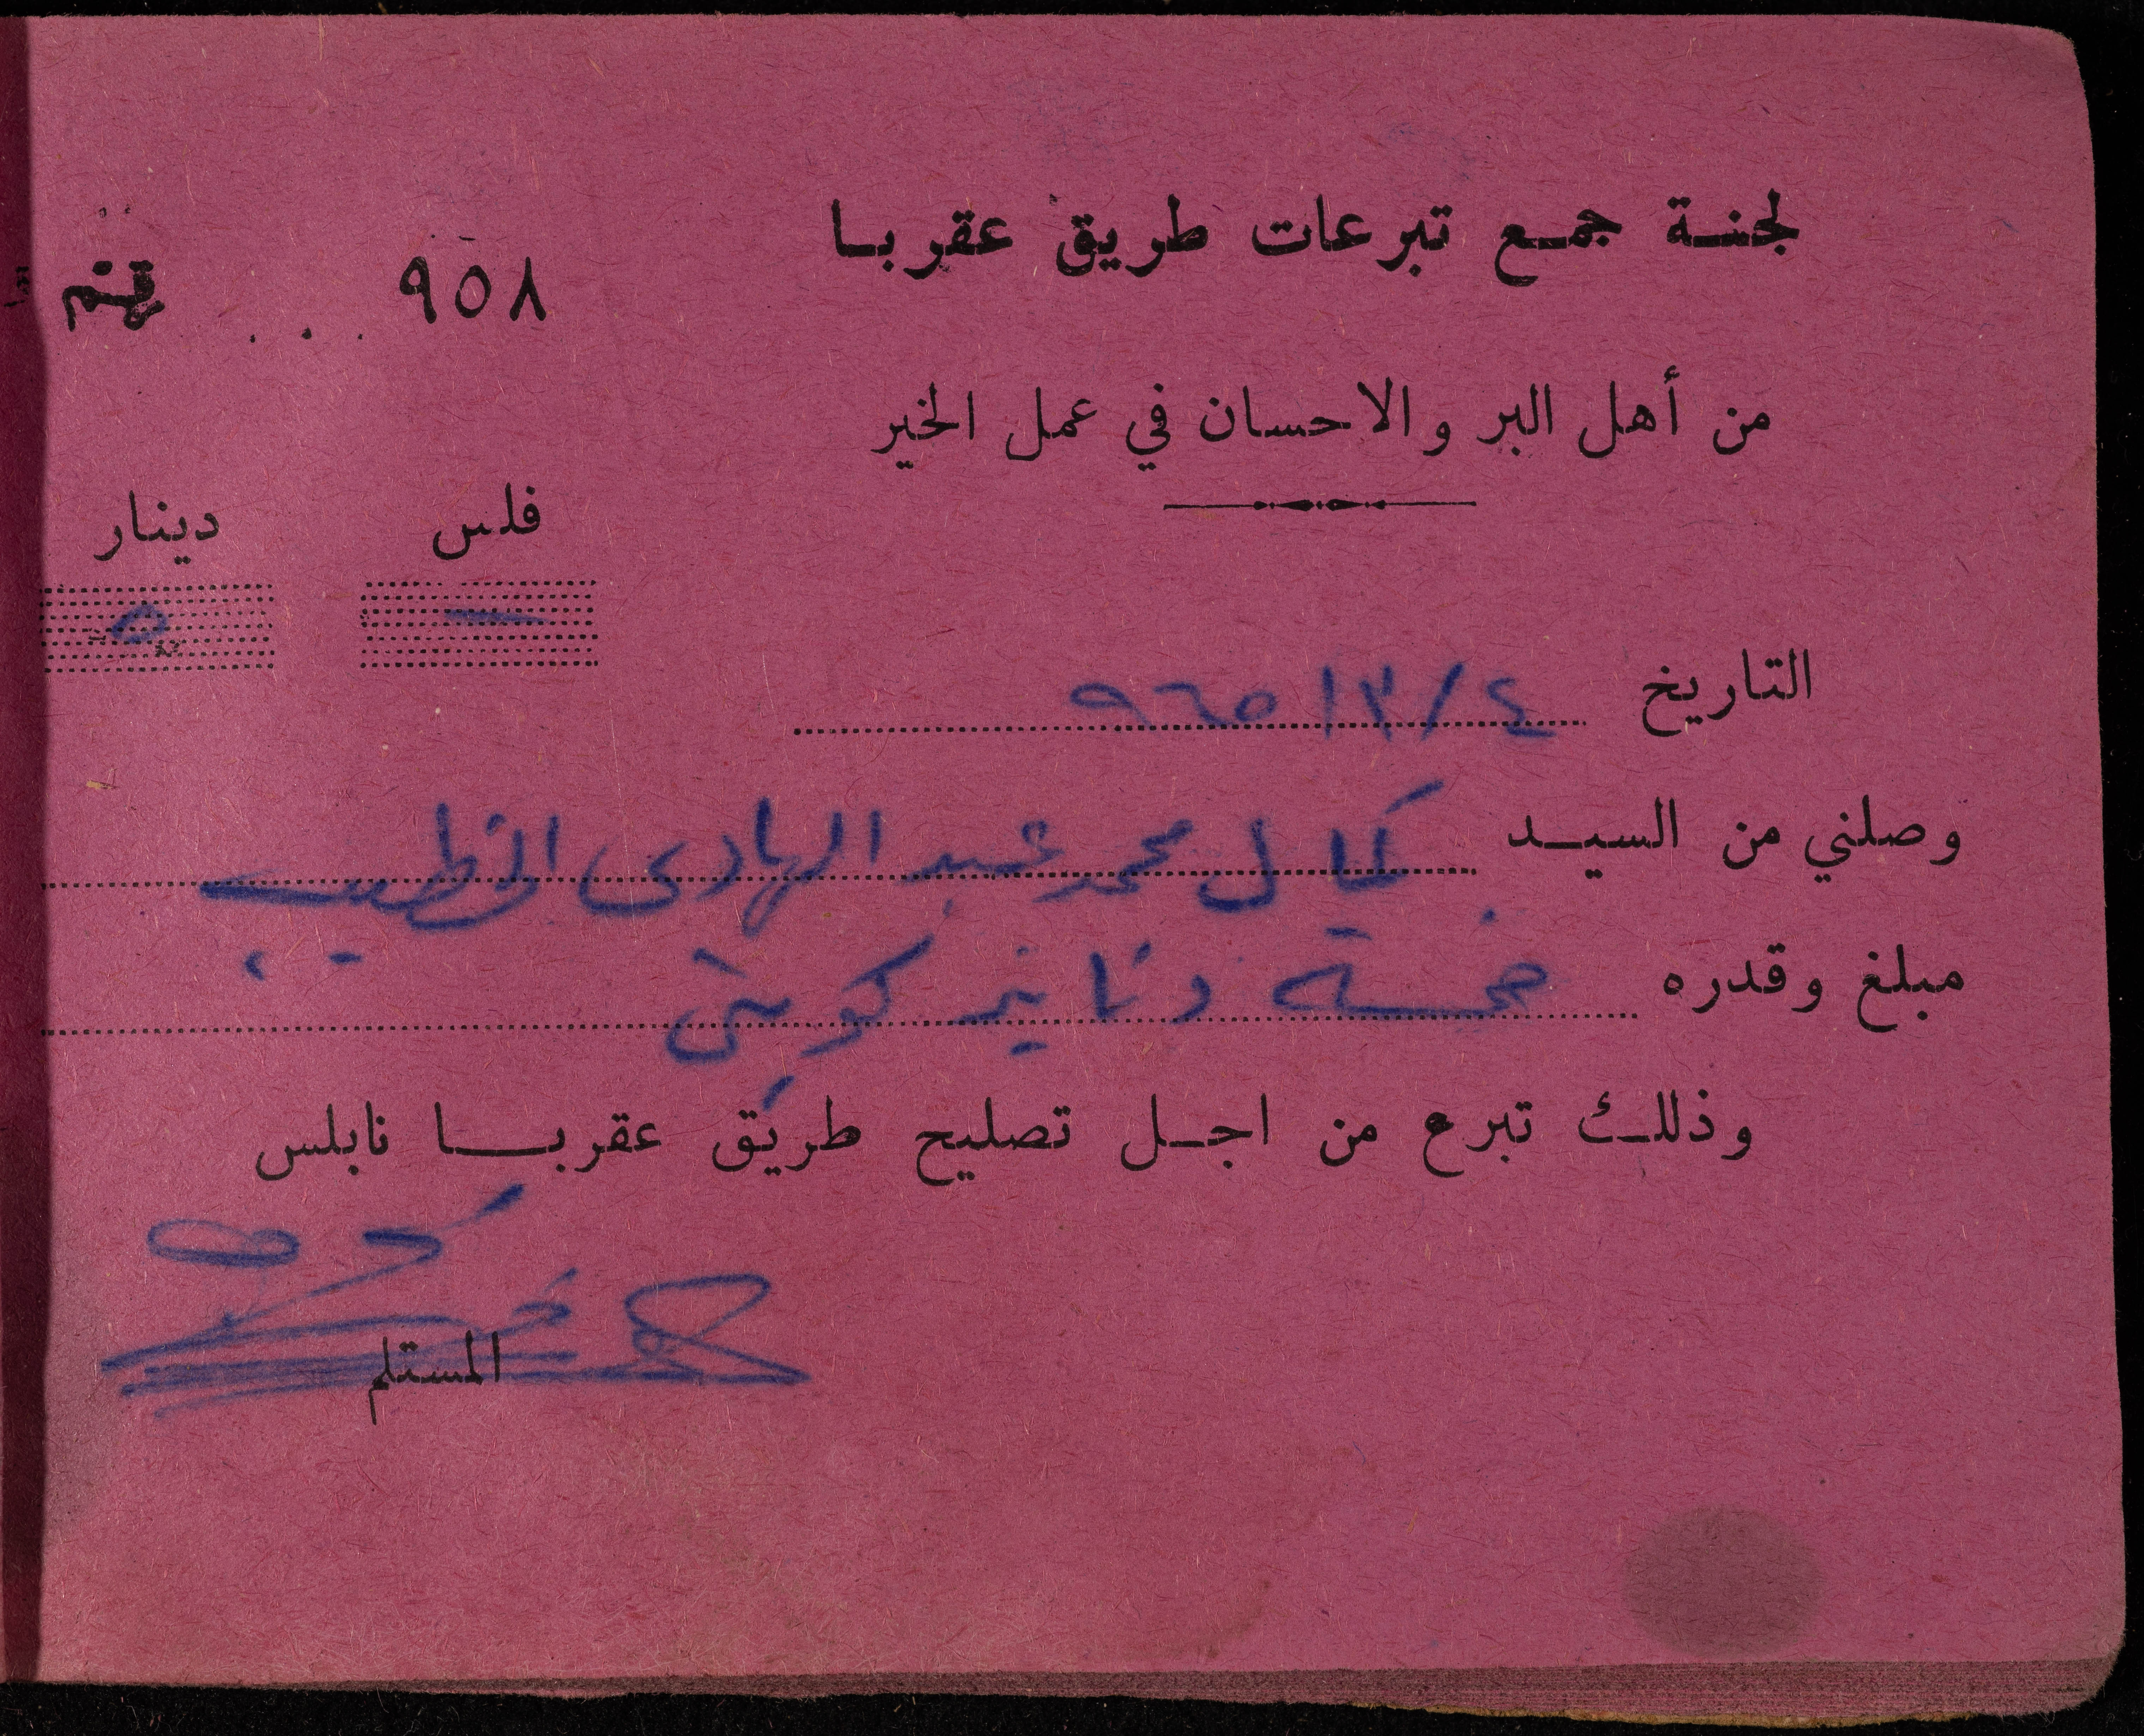 لجنة جمع تبرعات طريق عقربا
٩٥٨
من أهل البر والاحسان في عمل الخير
فلس دينار
— ٥
التاريخ ٤/٣/٩٦٥
وصلني من السيد كمال محمد عبد الهادى الخطيب
مبلغ وقدره خمسة دنانير كويتي
وذلك تبرع من اجل تصليح طريق عقربا نابلس
المستلم